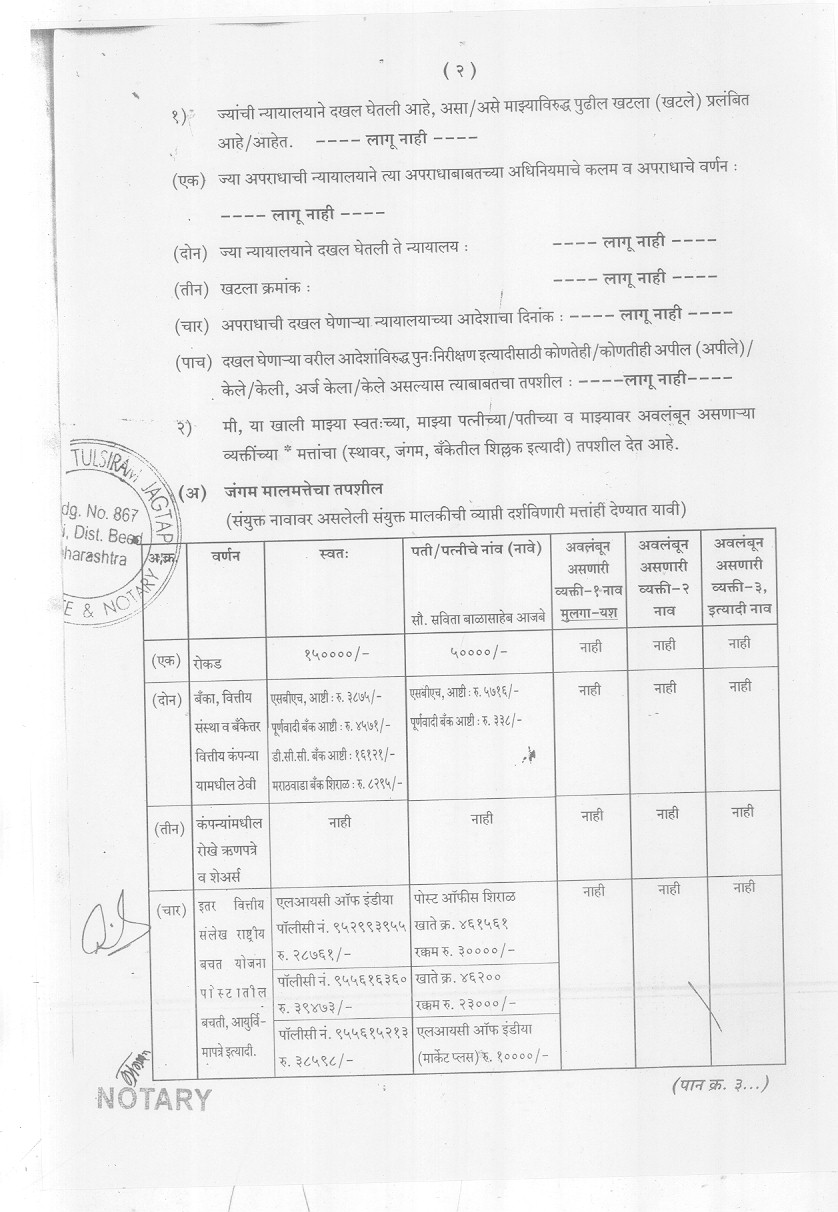 ( २ )
१) ज्यांची न्यायालयाने दखल घेतली आहे, असा/असे माझ्याविरुद्ध पुढील खटला (खटले) प्रलंबित
आहे/आहेत. ---- लागू नाही ----
(एक) ज्या अपराधाची न्यायालयाने त्या अपराधाबाबतच्या अधिनियमाचे कलम व अपराधाचे वर्णन :
---- लागू नाही ----
(दोन) ज्या न्यायालयाने दखल घेतली ते न्यायालय : ---- लागू नाही ----
(तीन) खटला क्रमांक : ---- लागू नाही ----
(चार) अपराधाची दखल घेणाऱ्या न्यायालयाच्या आदेशाचा दिनांक : ---- लागू नाही ----
(पाच) दखल घेणाऱ्या वरील आदेशांविरुद्ध पुनःनिरीक्षण इत्यादीसाठी कोणतेही/कोणतीही अपील (अपीले)/
केले/केली, अर्ज केला/केले असल्यास त्याबाबतचा तपशील : ----लागू नाही----
२) मी, या खाली माझ्या स्वतःच्या, माझ्या पत्नीच्या/पतीच्या व माझ्यावर अवलंबून असणाऱ्या
व्यक्तींच्या * मत्तांचा (स्थावर, जंगम, बँकेतील शिल्लक इत्यादी) तपशील देत आहे.
TULSIRAM JAGTAP
dg. No. 867
i, Dist. Beed
harashtra
E & NOTARY
(अ) जंगम मालमत्तेचा तपशील
(संयुक्त नावावर असलेली संयुक्त मालकीची व्याप्ती दर्शविणारी मत्तांही देण्यात यावी)
अ.क्र. वर्णन स्वतः पती/पत्नीचे नांव (नावे) अवलंबून अवलंबून अवलंबून
असणारी असणारी असणारी
व्यक्ती-१ नाव व्यक्ती-२ व्यक्ती-३,
सौ. सविता बाळासाहेब आजबे मुलगा-यश नाव इत्यादी नाव
(एक) रोकड १५००००/- ५००००/- नाही नाही नाही
(दोन) बँका, वित्तीय एसबीएच, आष्टी : रु. ३८७५/- एसबीएच, आष्टी : रु. ५७१६/- नाही नाही नाही
संस्था व बँकेत्तर पूर्णवादी बँक आष्टी : रु. ४५७१/- पूर्णवादी बँक आष्टी : रु. ३३८/-
वित्तीय कंपन्या डी.सी.सी. बँक आष्टी : १६१२१/-
यामधील ठेवी मराठवाडा बँक शिराळ : रु. ८२१५/-
(तीन) कंपन्यांमधील नाही नाही नाही नाही नाही
रोखे ऋणपत्रे
व शेअर्स
(चार) इतर वित्तीय एलआयसी ऑफ इंडीया पोस्ट ऑफीस शिराळ नाही नाही नाही
संलेख राष्ट्रीय पॉलीसी नं. ९५२९९३९५५ खाते क्र. ४६१५६१
बचत योजना रु. २८७६१/- रक्कम रु. ३००००/-
पोस्टातील पॉलीसी नं. ९५५६१६३६० खाते क्र. ४६२००
बचती, आयुर्वि- रु. ३९४७३/- रक्कम रु. २३०००/-
मापत्रे इत्यादी. पॉलीसी नं. ९५५६१५२१३ एलआयसी ऑफ इंडीया
रु. ३८५९८/- (मार्केट प्लस) रु. १००००/-
NOTARY
(पान क्र. ३...)